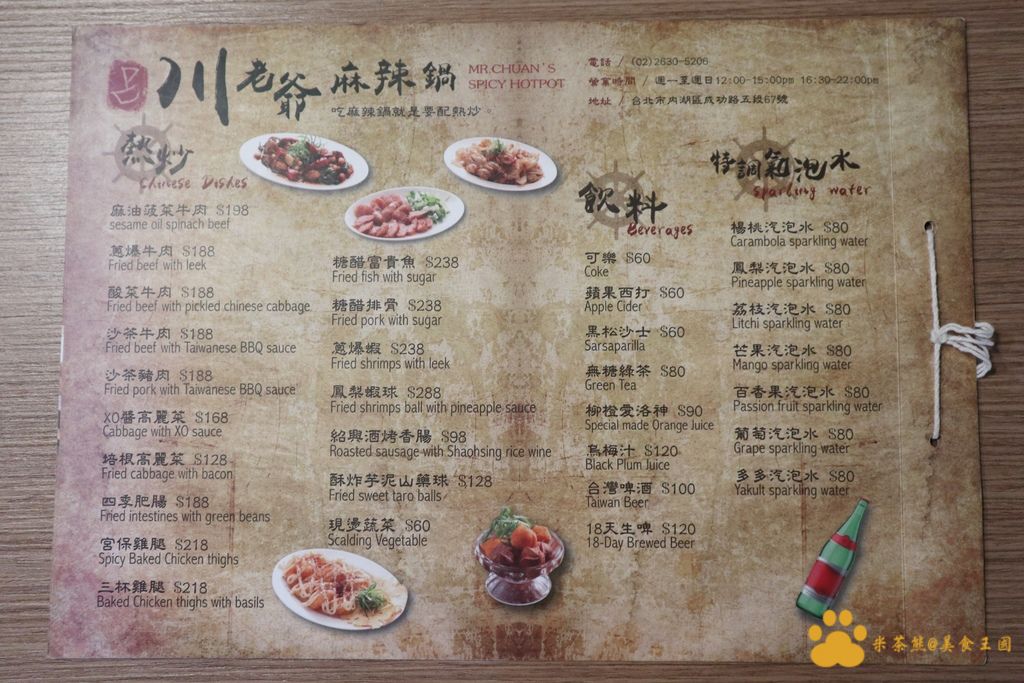 川老爺麻辣鍋
MR.CHUAN'S
SPICY HOTPOT
吃麻辣鍋就是要配熱炒。
電話 / (02)2630-5206
營業時間 / 週一至週日12:00-15:00pm 16:30-22:00pm
地址 / 台北市內湖區成功路五段67號
熱炒
Chinese Dishes
麻油菠菜牛肉 $198
sesame oil spinach beef
蔥爆牛肉 $188
Fried beef with leek
酸菜牛肉 $188
Fried beef with pickled chinese cabbage
沙茶牛肉 $188
Fried beef with Taiwanese BBQ sauce
沙茶豬肉 $188
Fried pork with Taiwanese BBQ sauce
XO醬高麗菜 $168
Cabbage with XO sauce
培根高麗菜 $128
Fried cabbage with bacon
四季肥腸 $188
Fried intestines with green beans
宮保雞腿 $218
Spicy Baked Chicken thighs
三杯雞腿 $218
Baked Chicken thighs with basils
糖醋富貴魚 $238
Fried fish with sugar
糖醋排骨 $238
Fried pork with sugar
蔥爆蝦 $238
Fried shrimps with leek
鳳梨蝦球 $288
Fried shrimps ball with pineapple sauce
紹興酒烤香腸 $98
Roasted sausage with Shaohsing rice wine
酥炸芋泥山藥球 $128
Fried sweet taro balls
現燙蔬菜 $60
Scalding Vegetable
飲料
Beverages
可樂 $60
Coke
蘋果西打 $60
Apple Cider
黑松沙士 $60
Sarsaparilla
無糖綠茶 $80
Green Tea
柳橙愛洛神 $90
Special made Orange Juice
烏梅汁 $120
Black Plum Juice
台灣啤酒 $100
Taiwan Beer
18天生啤 $120
18-Day Brewed Beer
特調氣泡水
Sparkling water
楊桃汽泡水 $80
Carambola sparkling water
鳳梨汽泡水 $80
Pineapple sparkling water
荔枝汽泡水 $80
Litchi sparkling water
芒果汽泡水 $80
Mango sparkling water
百香果汽泡水 $80
Passion fruit sparkling water
葡萄汽泡水 $80
Grape sparkling water
多多汽泡水 $80
Yakult sparkling water
米茶熊@美食王國